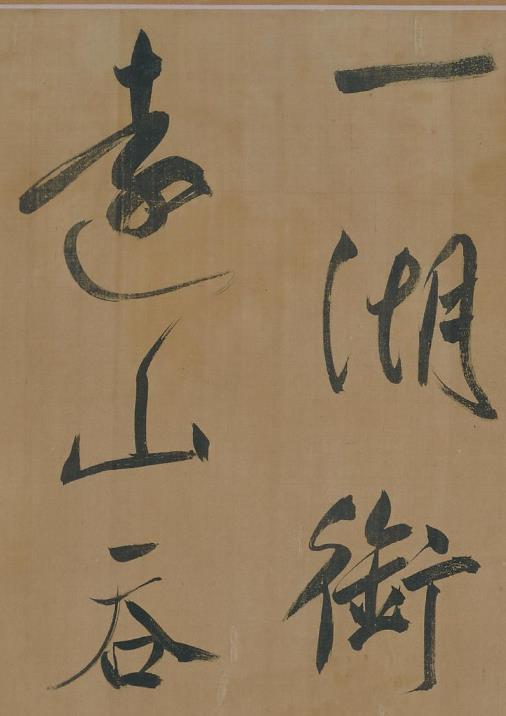 一湖銜
遠山吞